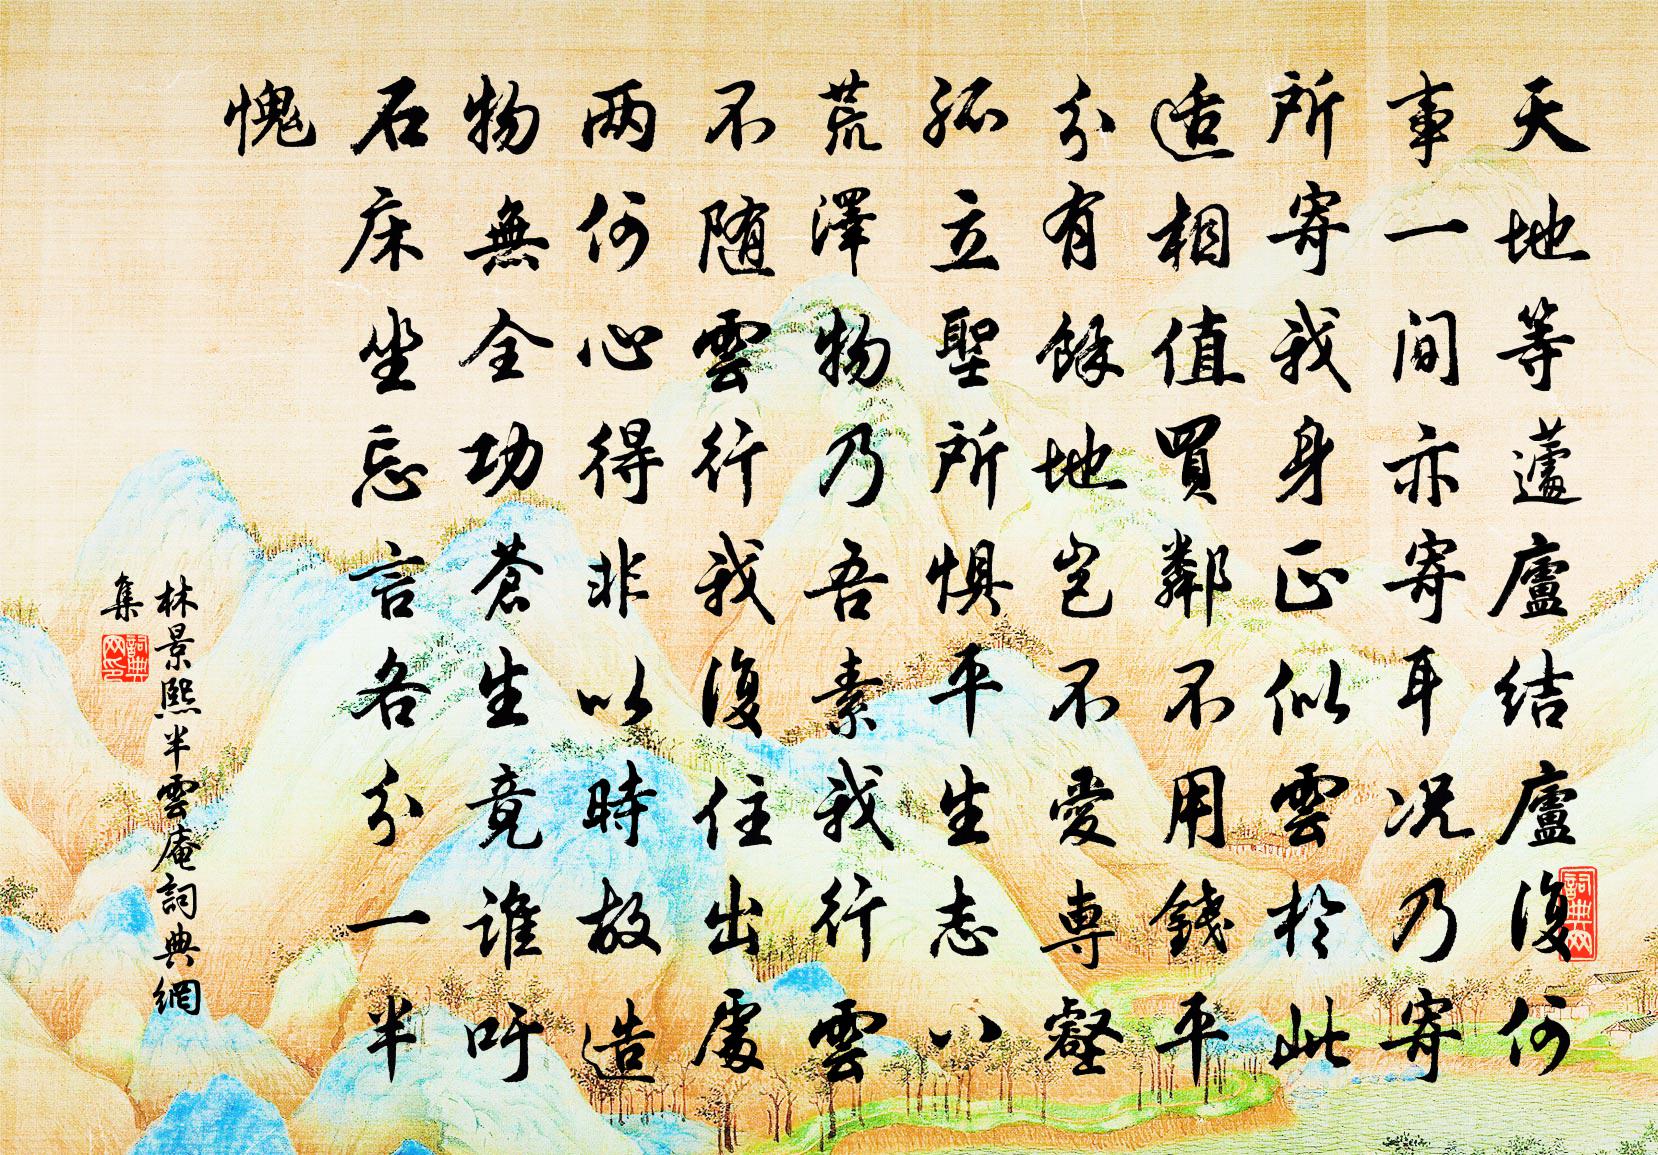 天地等蘧廬結廬復何
事一间亦寄耳况乃寄
所寄我身正似雲於此
适相值買鄰不用錢平
分有餘地岂不愛專壑
孤立聖所惧平生志八
荒澤物乃吾素我行雲
不随雲行我復住出處
两何心得非以時故造
物無全功蒼生竟谁吁
石床坐忘言各分一半
愧
林景熙半雲庵詞典網
集
詞典网印
詞典网